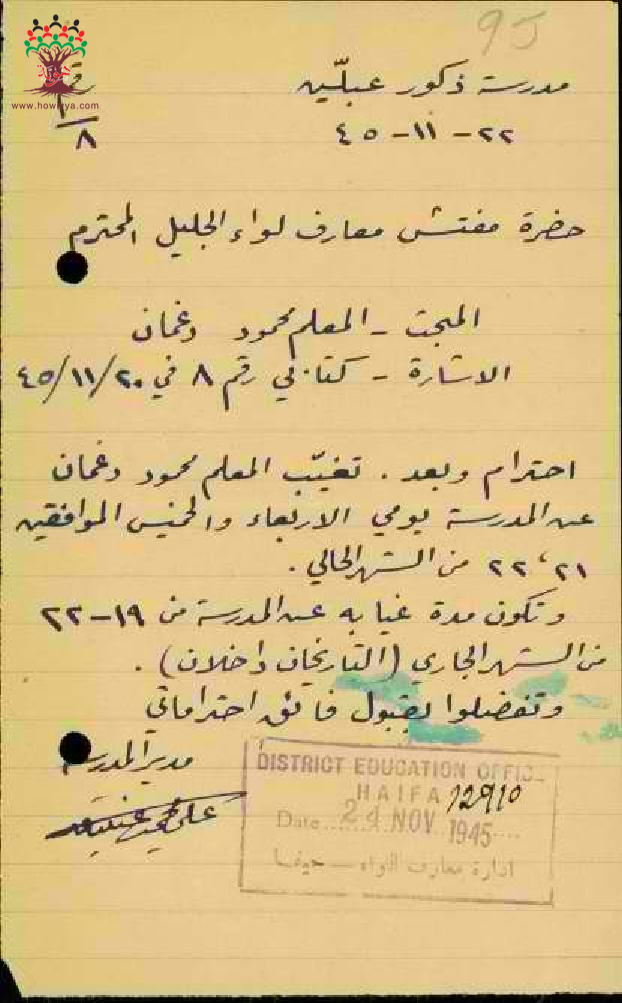 95
مدرسة ذكور عبلّين
رقم
٨
www.howiyya.com
٢٢-١١-٤٥
حضرة مفتش معارف لواء الجليل المحترم
المبحث - المعلم محمود دغمان
الاشارة - كتابي رقم ٨ في ٢٠/١١/٤٥
احترام وبعد. تغيّب المعلم محمود دغمان
عن المدرسة يومي الاربعاء والخميس الموافقين
٢١، ٢٢ من الشهر الحالي.
وتكون مدة غيابه عن المدرسة من ١٩-٢٢
من الشهر الجاري (التاريخان داخلان).
وتفضلوا بقبول فائق احتراماتي
مدير المدرسة
علي
DISTRICT EDUCATION OFFICE
HAIFA 12910
Date 24 NOV 1945
ادارة معارف اللواء - حيفا